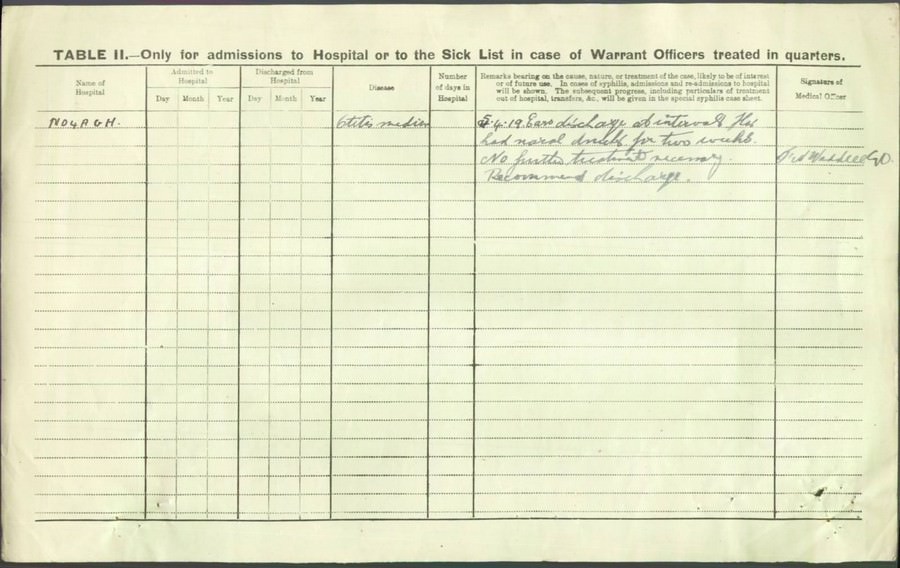 TABLE II.—Only for admissions to Hospital or to the Sick List in case of Warrant Officers treated in quarters.
Name of Hospital
Admitted to Hospital
Day Month Year
Discharged from Hospital
Day Month Year
Disease
Number of days in Hospital
Remarks bearing on the cause, nature, or treatment of the case, likely to be of interest
or of future use. In cases of syphilis, admissions and re-admissions to hospital
will be shown. The subsequent progress, including particulars of treatment
out of hospital, transfers, &c., will be given in the special syphilis case sheet.
Signature of Medical Officer
NO 4 A G H. Otitis media 5.4.19 Ears discharge at intervals Has
had nasal for two weeks.
No further treatment necessary.
Recommend discharge.